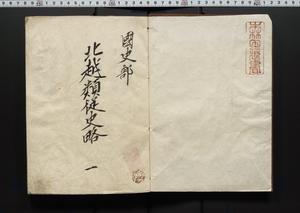 國史部
北越類従史略 一